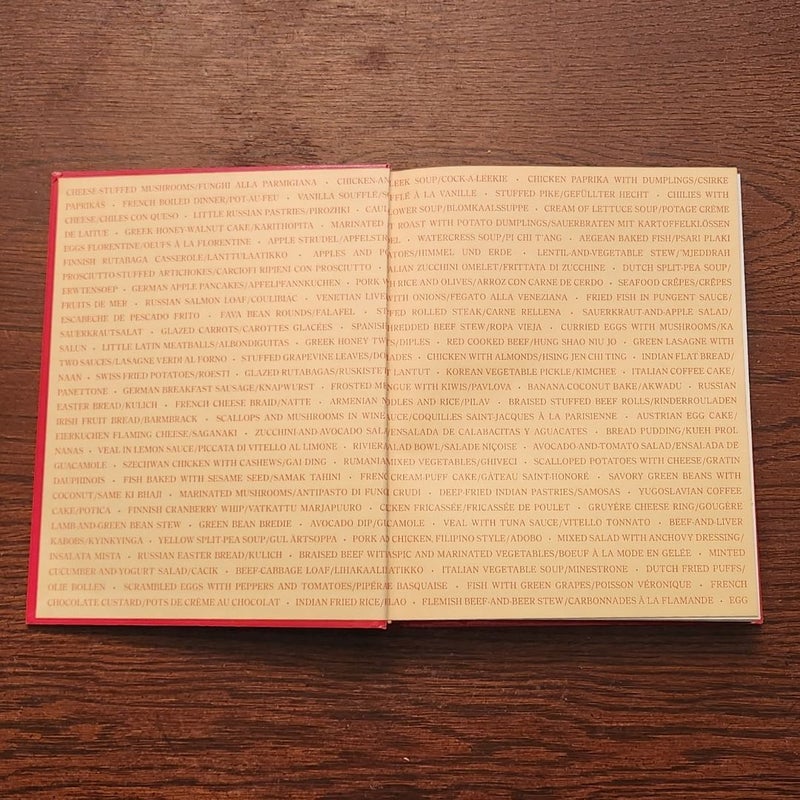 CHEESE-STUFFED MUSHROOMS/FUNGHI ALLA PARMIGIANA · CHICKEN-AND-LEEK SOUP/COCK-A-LEEKIE · CHICKEN PAPRIKA WITH DUMPLINGS/CSIRKE
PAPRIKÁS · FRENCH BOILED DINNER/POT-AU-FEU · VANILLA SOUFFLÉ/SOUFFLÉ À LA VANILLE · STUFFED PIKE/GEFÜLLTER HECHT · CHILIES WITH
CHEESE/CHILES CON QUESO · LITTLE RUSSIAN PASTRIES/PIROZHKI · CAULIFLOWER SOUP/BLOMKAALSSUPPE · CREAM OF LETTUCE SOUP/POTAGE CRÈME
DE LAITUE · GREEK HONEY-WALNUT CAKE/KARITHOPITA · MARINATED ROAST WITH POTATO DUMPLINGS/SAUERBRATEN MIT KARTOFFELKLÖSSEN
EGGS FLORENTINE/OEUFS À LA FLORENTINE · APPLE STRUDEL/APFELSTRUDEL · WATERCRESS SOUP/PI CHI T'ANG · AEGEAN BAKED FISH/PSARI PLAKI
FINNISH RUTABAGA CASSEROLE/LANTTULAATIKKO · APPLES AND POTATOES/HIMMEL UND ERDE · LENTIL-AND-VEGETABLE STEW/MJEDDRAH
PROSCIUTTO-STUFFED ARTICHOKES/CARCIOFI RIPIENI CON PROSCIUTTO · ITALIAN ZUCCHINI OMELET/FRITTATA DI ZUCCHINE · DUTCH SPLIT-PEA SOUP/
ERWTENSOEP · GERMAN APPLE PANCAKES/APFELPFANNKUCHEN · PORK WITH RICE AND OLIVES/ARROZ CON CARNE DE CERDO · SEAFOOD CRÊPES/CRÊPES
FRUITS DE MER · RUSSIAN SALMON LOAF/COULIBIAC · VENETIAN LIVER WITH ONIONS/FEGATO ALLA VENEZIANA · FRIED FISH IN PUNGENT SAUCE/
ESCABECHE DE PESCADO FRITO · FAVA BEAN ROUNDS/FALAFEL · STUFFED ROLLED STEAK/CARNE RELLENA · SAUERKRAUT-AND-APPLE SALAD/
SAUERKRAUTSALAT · GLAZED CARROTS/CAROTTES GLACÉES · SPANISH SHREDDED BEEF STEW/ROPA VIEJA · CURRIED EGGS WITH MUSHROOMS/KA
SALUN · LITTLE LATIN MEATBALLS/ALBONDIGUITAS · GREEK HONEY TWISTS/DIPLES · RED COOKED BEEF/HUNG SHAO NIU JO · GREEN LASAGNE WITH
TWO SAUCES/LASAGNE VERDI AL FORNO · STUFFED GRAPEVINE LEAVES/DOLMADES · CHICKEN WITH ALMONDS/HSING JEN CHI TING · INDIAN FLAT BREAD/
NAAN · SWISS FRIED POTATOES/ROESTI · GLAZED RUTABAGAS/RUSKISTETUT LANTUT · KOREAN VEGETABLE PICKLE/KIMCHEE · ITALIAN COFFEE CAKE/
PANETTONE · GERMAN BREAKFAST SAUSAGE/KNAPWURST · FROSTED MERINGUE WITH KIWIS/PAVLOVA · BANANA-COCONUT BAKE/AKWADU · RUSSIAN
EASTER BREAD/KULICH · FRENCH CHEESE BRAID/NATTE · ARMENIAN NOODLES AND RICE/PILAV · BRAISED STUFFED BEEF ROLLS/RINDERROULADEN
IRISH FRUIT BREAD/BARMBRACK · SCALLOPS AND MUSHROOMS IN WINE SAUCE/COQUILLES SAINT-JACQUES À LA PARISIENNE · AUSTRIAN EGG CAKE/
EIERKUCHEN FLAMING CHEESE/SAGANAKI · ZUCCHINI-AND-AVOCADO SALAD/ENSALADA DE CALABACITAS Y AGUACATES · BREAD PUDDING/KUEH PROL
NANAS · VEAL IN LEMON SAUCE/PICCATA DI VITELLO AL LIMONE · RIVIERA SALAD BOWL/SALADE NIÇOISE · AVOCADO-AND-TOMATO SALAD/ENSALADA DE
GUACAMOLE · SZECHWAN CHICKEN WITH CASHEWS/GAI DING · RUMANIAN MIXED VEGETABLES/GHIVECI · SCALLOPED POTATOES WITH CHEESE/GRATIN
DAUPHINOIS · FISH BAKED WITH SESAME SEED/SAMAK TAHINI · FRENCH CREAM-PUFF CAKE/GÂTEAU SAINT-HONORÉ · SAVORY GREEN BEANS WITH
COCONUT/SAME KI BHAJI · MARINATED MUSHROOMS/ANTIPASTI DI FUNGHI CRUDI · DEEP-FRIED INDIAN PASTRIES/SAMOSAS · YUGOSLAVIAN COFFEE
CAKE/POTICA · FINNISH CRANBERRY WHIP/VATKATTU MARJAPUURO · CHICKEN FRICASSÉE/FRICASSÉE DE POULET · GRUYÈRE CHEESE RING/GOUGÈRE
LAMB-AND-GREEN BEAN STEW · GREEN BEAN BREDIE · AVOCADO DIP/GUACAMOLE · VEAL WITH TUNA SAUCE/VITELLO TONNATO · BEEF-AND-LIVER
KABOBS/KYINKYINGA · YELLOW SPLIT-PEA SOUP/GUL ÄRTSOPPA · PORK AND CHICKEN, FILIPINO STYLE/ADOBO · MIXED SALAD WITH ANCHOVY DRESSING/
INSALATA MISTA · RUSSIAN EASTER BREAD/KULICH · BRAISED BEEF WITH ASPIC AND MARINATED VEGETABLES/BOEUF À LA MODE EN GELÉE · MINTED
CUCUMBER AND YOGURT SALAD/CACIK · BEEF-CABBAGE LOAF/LIHAKAALILAATIKKO · ITALIAN VEGETABLE SOUP/MINESTRONE · DUTCH FRIED PUFFS/
OLIE BOLLEN · SCRAMBLED EGGS WITH PEPPERS AND TOMATOES/PIPÉRADE BASQUAISE · FISH WITH GREEN GRAPES/POISSON VÉRONIQUE · FRENCH
CHOCOLATE CUSTARD/POTS DE CRÈME AU CHOCOLAT · INDIAN FRIED RICE/PILAO · FLEMISH BEEF-AND-BEER STEW/CARBONNADES À LA FLAMANDE · EGG